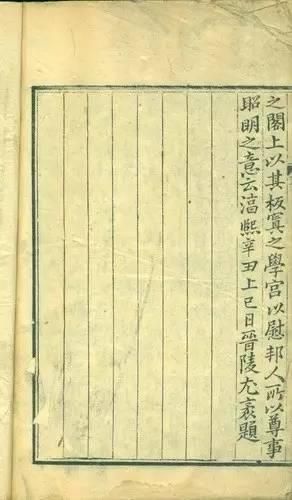 之閣上以其板寘之學宮以慰邦人所以尊事
昭明之意云淳熙辛丑上巳日晉陵尤袤題